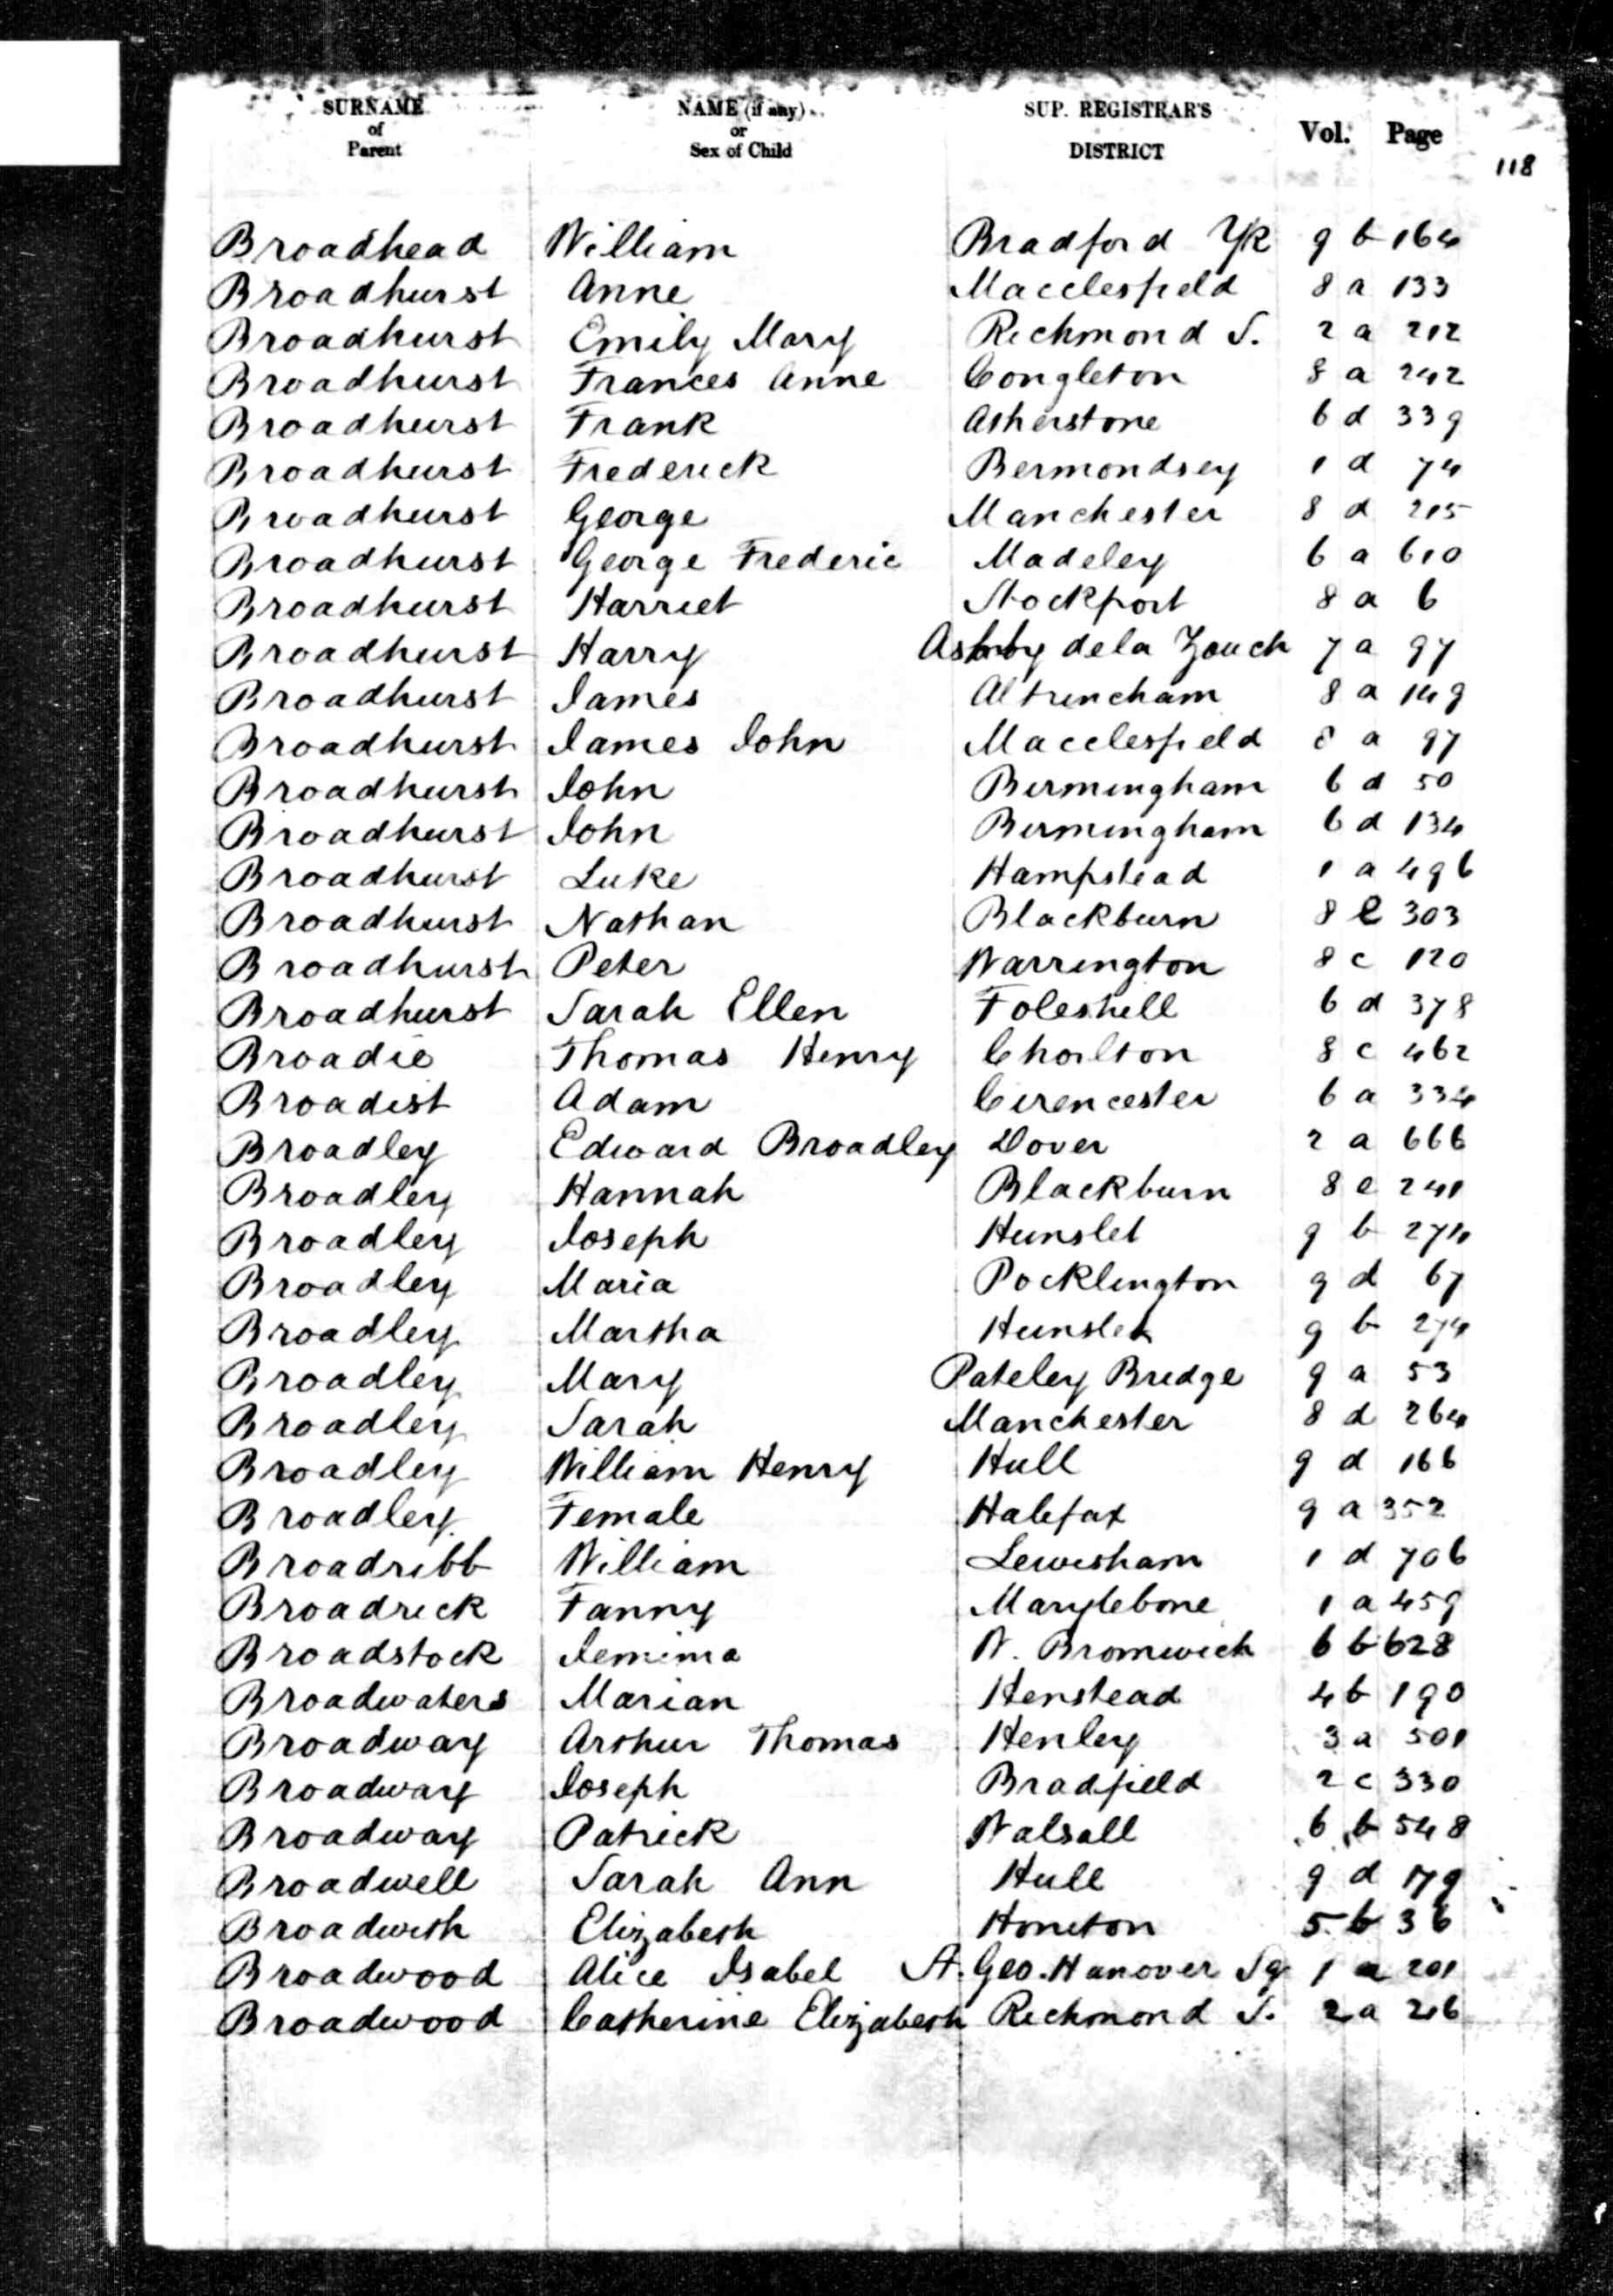 SURNAME of Parent NAME (if any) or Sex of Child SUP. REGISTRAR'S DISTRICT Vol. Page
118
Broadhead William Bradford Yk 9 b 164
Broadhurst Anne Macclesfield 8 a 133
Broadhurst Emily Mary Richmond S. 2 a 212
Broadhurst Frances Anne Congleton 8 a 242
Broadhurst Frank Atherstone 6 d 339
Broadhurst Frederick Bermondsey 1 d 74
Broadhurst George Manchester 8 d 215
Broadhurst George Frederic Madeley 6 a 610
Broadhurst Harriet Stockport 8 a 6
Broadhurst Harry Ashby de la Zouch 7 a 97
Broadhurst James Altrincham 8 a 149
Broadhurst James John Macclesfield 8 a 97
Broadhurst John Birmingham 6 d 50
Broadhurst John Birmingham 6 d 134
Broadhurst Luke Hampstead 1 a 496
Broadhurst Nathan Blackburn 8 e 303
Broadhurst Peter Warrington 8 c 120
Broadhurst Sarah Ellen Foleshill 6 d 378
Broadie Thomas Henry Chorlton 8 c 462
Broadist Adam Cirencester 6 a 334
Broadley Edward Broadley Dover 2 a 666
Broadley Hannah Blackburn 8 e 241
Broadley Joseph Hunslet 9 b 274
Broadley Maria Pocklington 9 d 67
Broadley Martha Hunslet 9 b 274
Broadley Mary Pateley Bridge 9 a 53
Broadley Sarah Manchester 8 d 264
Broadley William Henry Hull 9 d 166
Broadley Female Halifax 9 a 352
Broadribb William Lewisham 1 d 706
Broadrick Fanny Marylebone 1 a 459
Broadstock Jemima W. Bromwich 6 b 628
Broadwaters Marian Henstead 4 b 190
Broadway Arthur Thomas Henley 3 a 501
Broadway Joseph Bradfield 2 c 330
Broadway Patrick Walsall 6 b 548
Broadwell Sarah Ann Hull 9 d 179
Broadwith Elizabeth Honiton 5 b 36
Broadwood Alice Isabel St. Geo. Hanover Sq 1 a 201
Broadwood Catherine Elizabeth Richmond S. 2 a 216